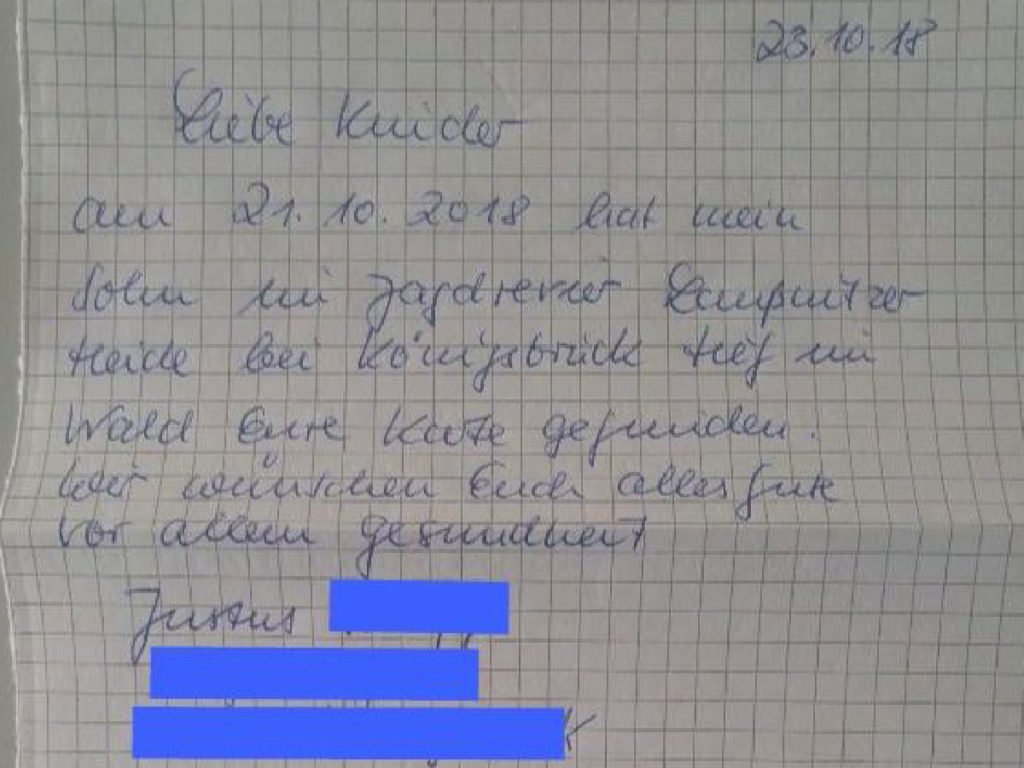 23.10.18
Liebe Kinder
am 21.10.2018 hat mein
Sohn im Jagdrevier
Heide bei Königsbrück tief im
Wald Eure Karte gefunden.
Wir wünschen Euch alles gute
vor allem gesundheit
Justus